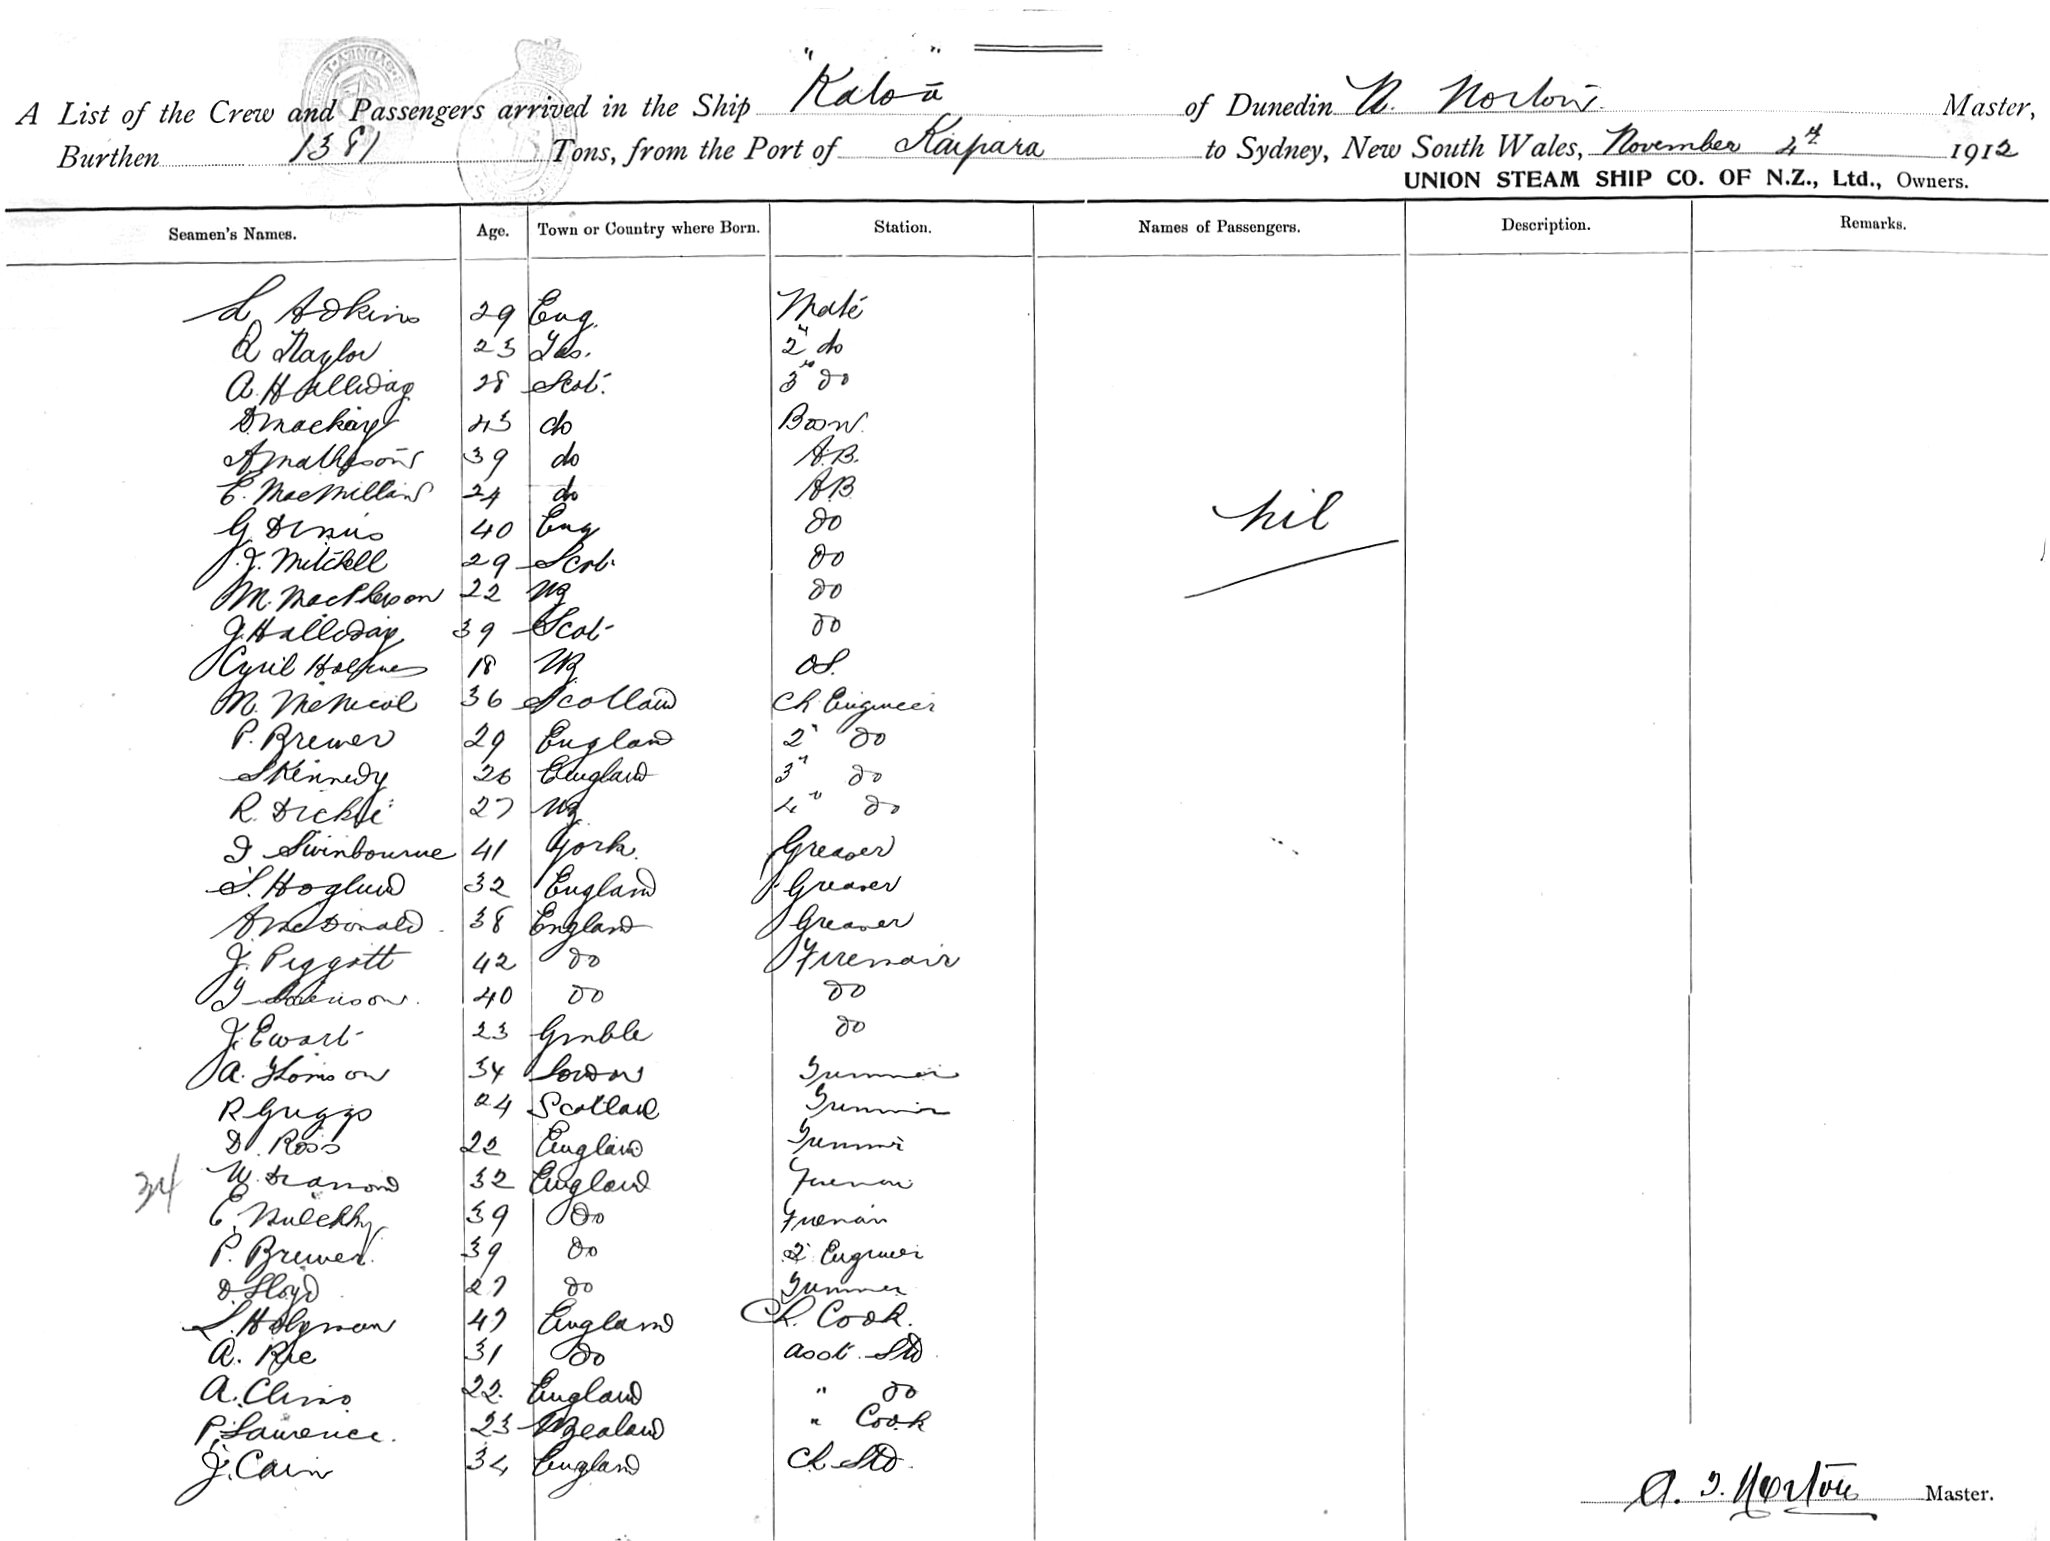 A List of the Crew and Passengers arrived in the Ship "Kaloā" of Dunedin Norton Master,
Burthen 1381 Tons, from the Port of Kaipara to Sydney, New South Wales, November 4th 1912
UNION STEAM SHIP CO. OF N.Z., Ltd., Owners.
Seamen's Names. Age. Town or Country where Born. Station. Names of Passengers. Description. Remarks.
L Adkins 29 Eng. Mate
R Naylor 23 Tas. 2" do
A. Halliday 28 Scot. 3rd do
D. Mackay 43 do Bosn.
A Mathesons 39 do A.B.
E. MacMillan 24 do A.B.
nil
G Dennis 40 Eng do
J. Mitchell 29 Scot. do
M. MacPherson 22 NZ do
J. Halliday 39 Scot do
Cyril Holmes 18 NZ OS.
M. McNicol 36 Scotland Ch Engineer
P. Brewer 29 England 2" do
S Kennedy 26 England 3" do
R. Dickie 27 NZ 4" do
J Swinbourne 41 York. Greaser
S. Hoglund 32 England Greaser
A McDonald 38 England Greaser
J. Piggott 42 do Fireman
J 40 do do
J. Ewart 23 do
A. Thomson 34 London Trimmer
R Griggs 24 Scotland Trimmer
D. Ross 22 England Trimmer
34
W. 32 England Fireman
E. 39 do Fireman
P. Brewer. 39 do 2" Engineer
D. Lloyd 27 do Trimmer
L. Holyman 47 England Ch. Cook.
A. Rae 31 do Asst. Std.
A. 22 England " do
P. Lawrence. 23 NZealand " Cook
J. Cain 34 England Ch Std.
A. J. Norton Master.